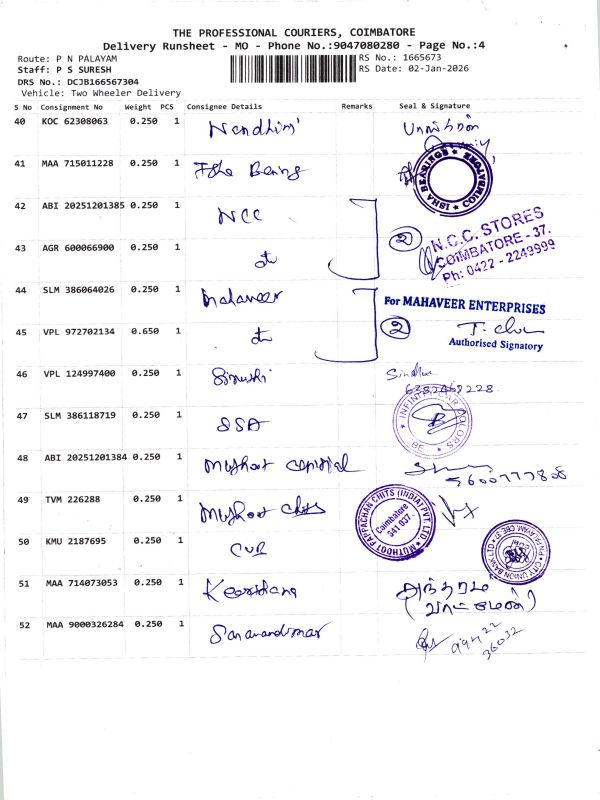 THE PROFESSIONAL COURIERS, COIMBATORE
Delivery Runsheet - MO - Phone No.:9047080280 - Page No.:4
Route: P N PALAYAM
RS No.: 1665673
Staff: P S SURESH
RS Date: 02-Jan-2026
DRS No.: DCJB166567304
Vehicle: Two Wheeler Delivery
S No Consignment No Weight PCS Consignee Details Remarks Seal & Signature
40 KOC 62308063 0.250 1 Nandhini
41 MAA 715011228 0.250 1
ISHA BEARINGS COIMBATORE
42 ABI 20251201385 0.250 1 NCC
2 N.C.C. STORES
COIMBATORE - 37.
Ph: 0422 - 2249999
43 AGR 600066900 0.250 1
44 SLM 386064026 0.250 1 Mahaveer
For MAHAVEER ENTERPRISES
45 VPL 972702134 0.650 1
2
Authorised Signatory
46 VPL 124997400 0.250 1
47 SLM 386118719 0.250 1 SSA
48 ABI 20251201384 0.250 1 Muthoot capital
5600777808
49 TVM 226288 0.250 1 Muthoot chits
MUTHOOT PAPPACHAN CHITS (INDIA) PVT. LTD.
Coimbatore
641 037
50 KMU 2187695 0.250 1 CUB
CITY UNION BANK LTD
51 MAA 714073053 0.250 1 Keerthana
52 MAA 9000326284 0.250 1
99422
36032